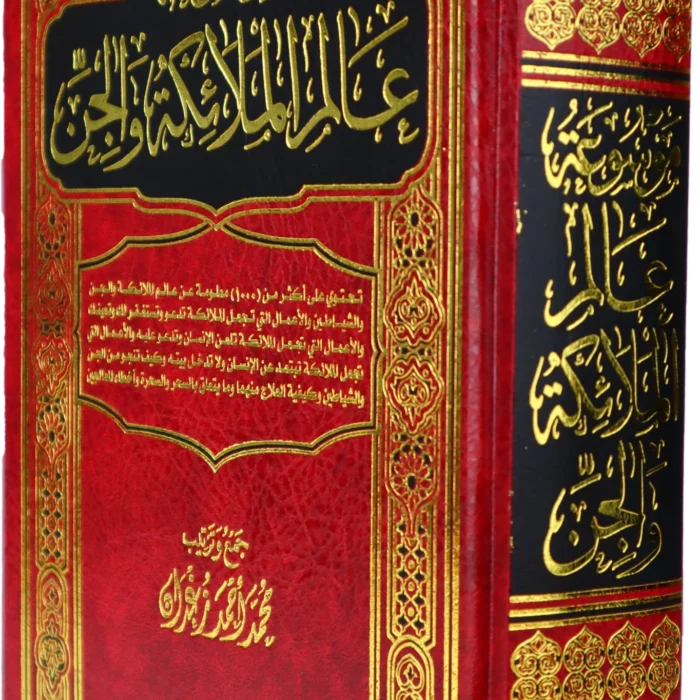 عَالَمُ المَلَائِكَةِ وَالجِنِّ
تحتوي على أكثر من (١٠٠٠) معلومة عن عالم الملائكة والجن
والشياطين والأعمال التي تجعل الملائكة تدعو وتستغفر لك وتعينك
والأعمال التي تجعل الملائكة تلعن الإنسان وتدعو عليه والأعمال التي
تجعل الملائكة تبتعد عن الإنسان ولا تدخل بيته وكيف تنجو من الجن
والشياطين وكيفية العلاج منهما وما يتعلق بالسحر والسحرة وأخطاء المعالجين
جمع وترتيب
محمد أحمد زغدان
موسوعة
عالم
الملائكة
والجن